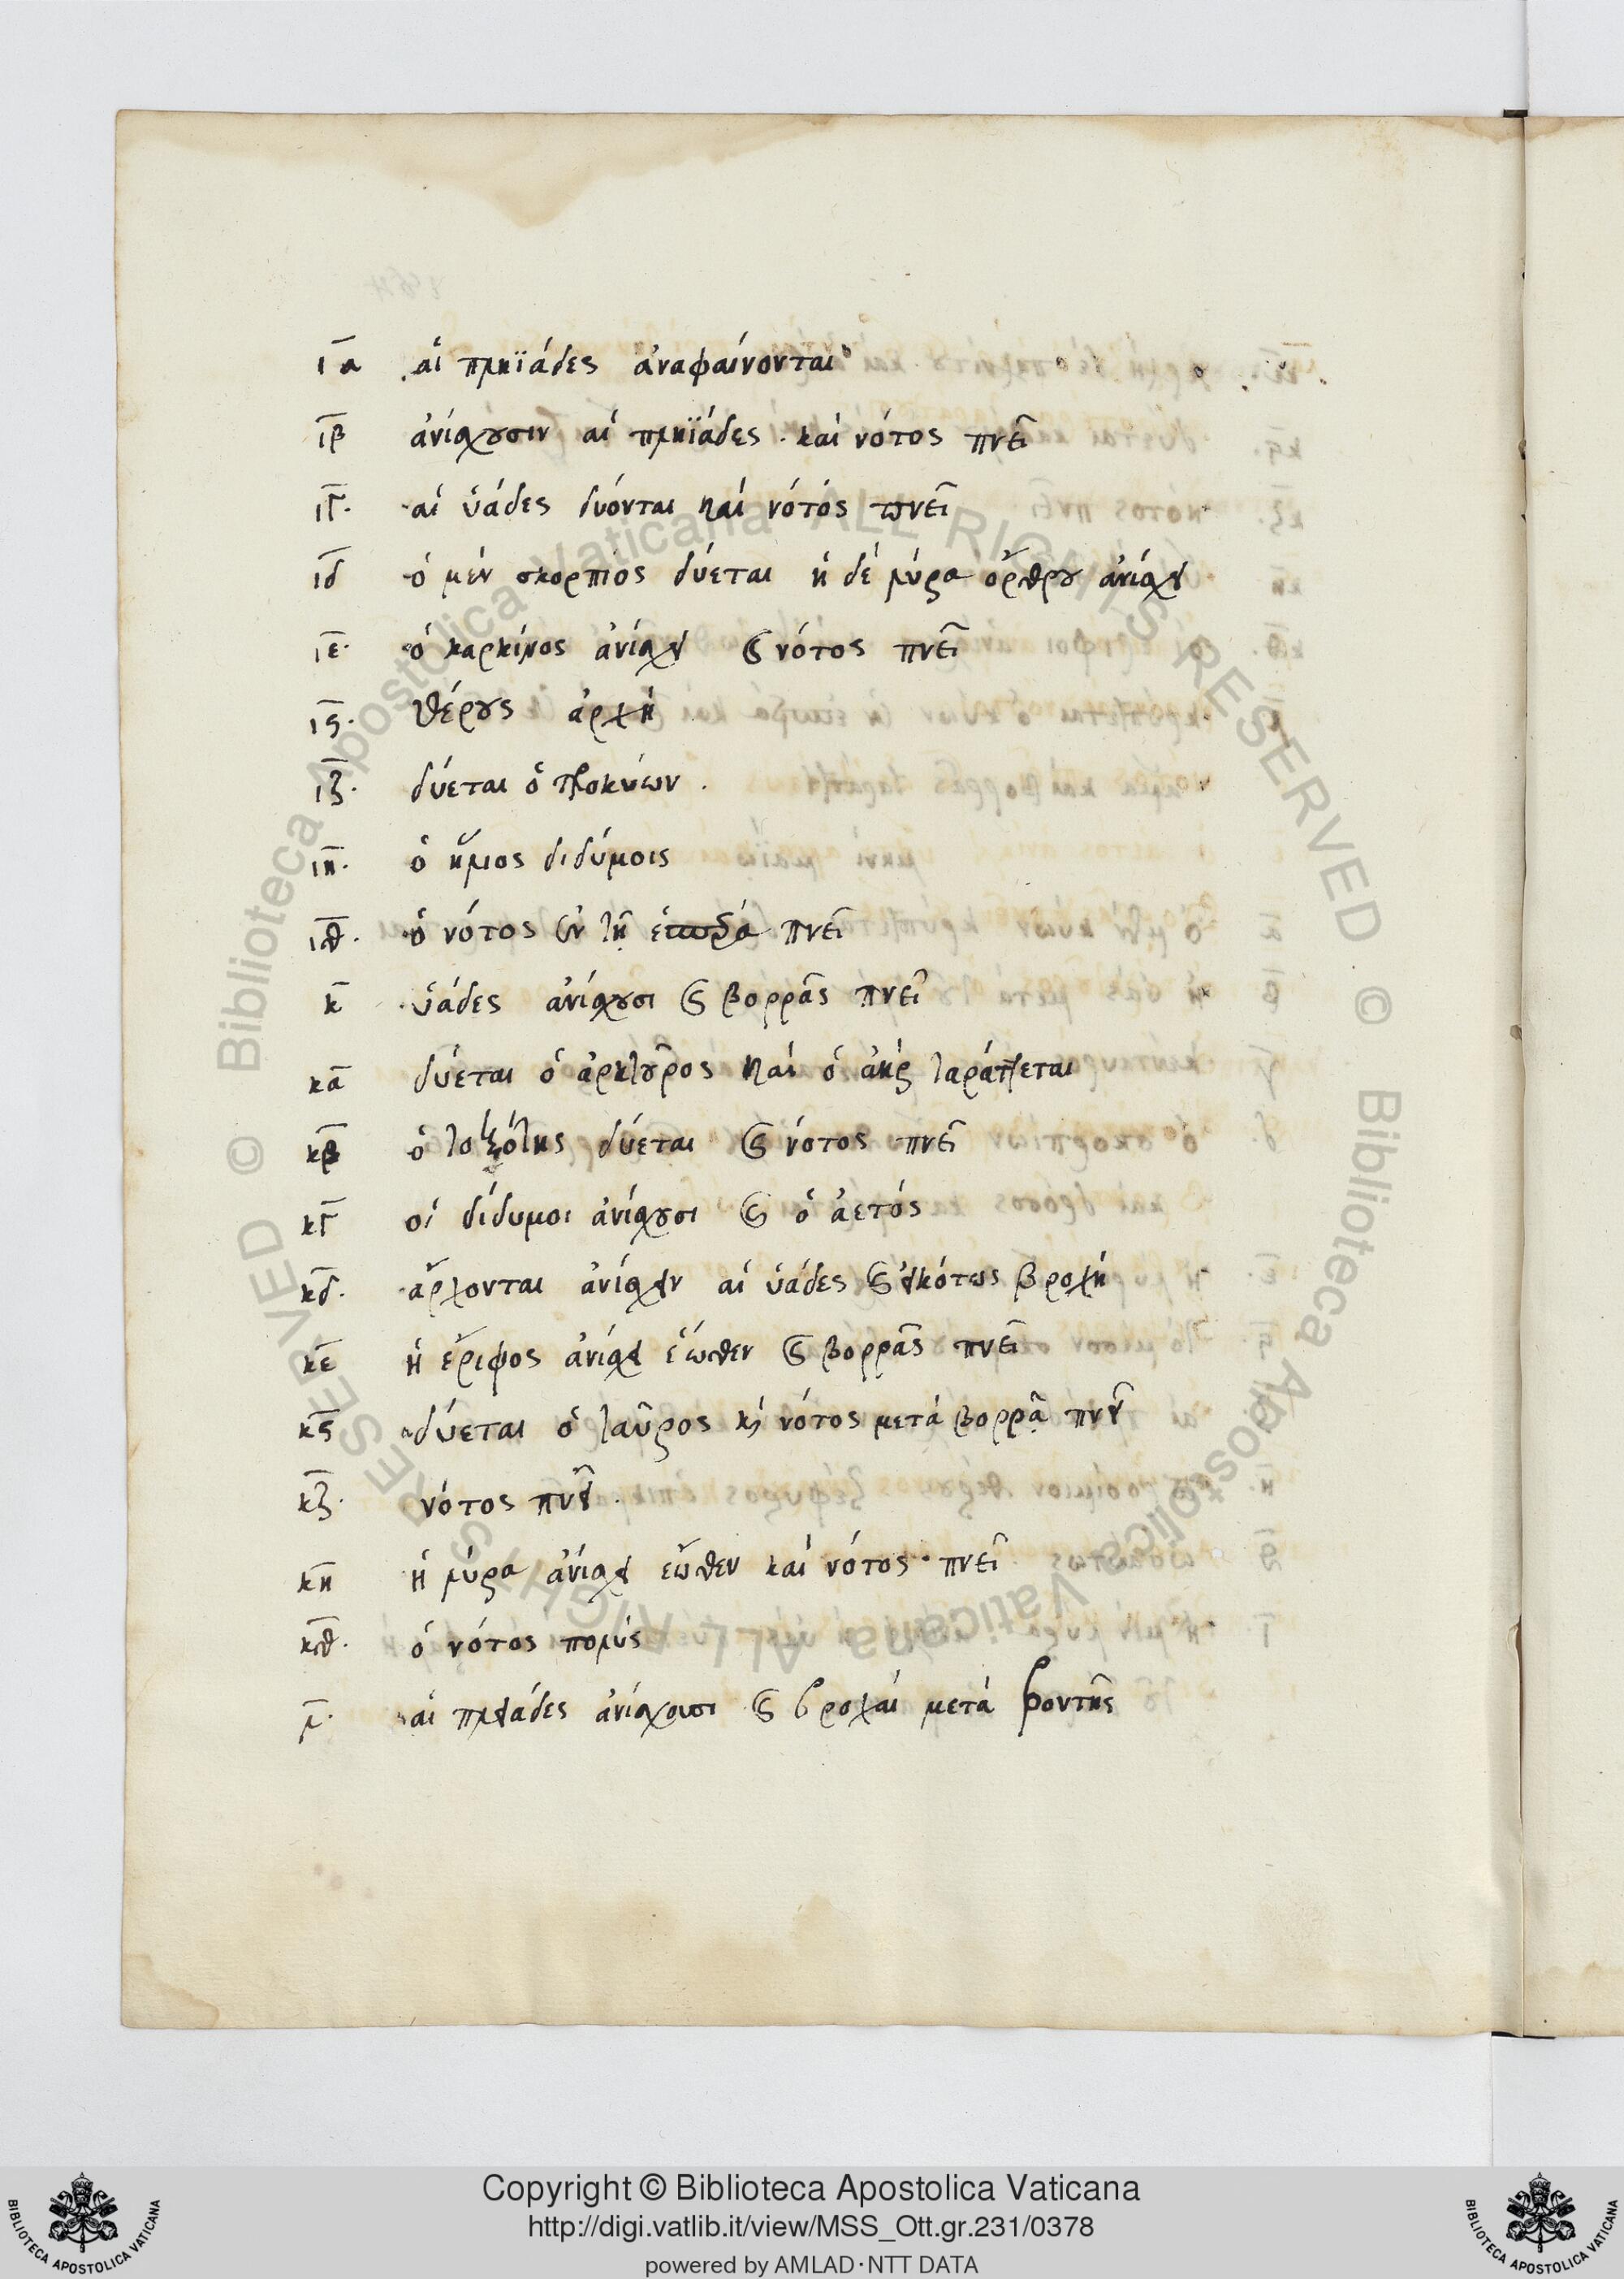 ια αἱ πληϊάδες ἀναφαίνονται
ιβ ἀνίσχουσιν αἱ πληϊάδες · καὶ νότος πνεῖ
ιγ· αἱ ὑάδες δύονται καὶ νότος πνεῖ
ιδ ὁ μὲν σκορπίος δύεται ἡ δὲ λύρα ὄρθρου ἀνίσχει
ιε· ὁ καρκίνος ἀνίσχει καὶ νότος πνεῖ
ις· θέρους ἀρχὴ
ιζ· δύεται ὁ προκύων .
ιη· ὁ ἥλιος διδύμοις
ιθ· ὁ νότος ἐν τῇ πνεῖ
κ ὑάδες ἀνίσχουσι καὶ βορρᾶς πνεῖ
κα δύεται ὁ ἀρκτοῦρος καὶ ὁ ἀὴρ ταράττεται
κβ ὁ τοξότης δύεται καὶ νότος πνεῖ
κγ οἱ δίδυμοι ἀνίσχουσι καὶ ὁ ἀετός
κδ· ἄρχονται ἀνίσχειν αἱ ὑάδες καὶ εἰκότως βροχὴ
κε ἡ ἔριφος ἀνίσχει ἕωθεν καὶ βορρᾶς πνεῖ
κς δύεται ὁ ταῦρος καὶ νότος μετὰ βορρᾶ πνεῖ
κζ· νότος πνεῖ .
κη ἡ λύρα ἀνίσχει ἕωθεν καὶ νότος · πνεῖ
κθ· ὁ νότος πολὺς
λ· αἱ πλειάδες ἀνίσχουσι καὶ βροχαὶ μετὰ βροντῆς
Biblioteca Apostolica Vaticana ALL RIGHTS RESERVED ©
Copyright © Biblioteca Apostolica Vaticana
http://digi.vatlib.it/view/MSS_Ott.gr.231/0378
powered by AMLAD·NTT DATA
BIBLIOTECA APOSTOLICA VATICANA
BIBLIOTECA APOSTOLICA VATICANA